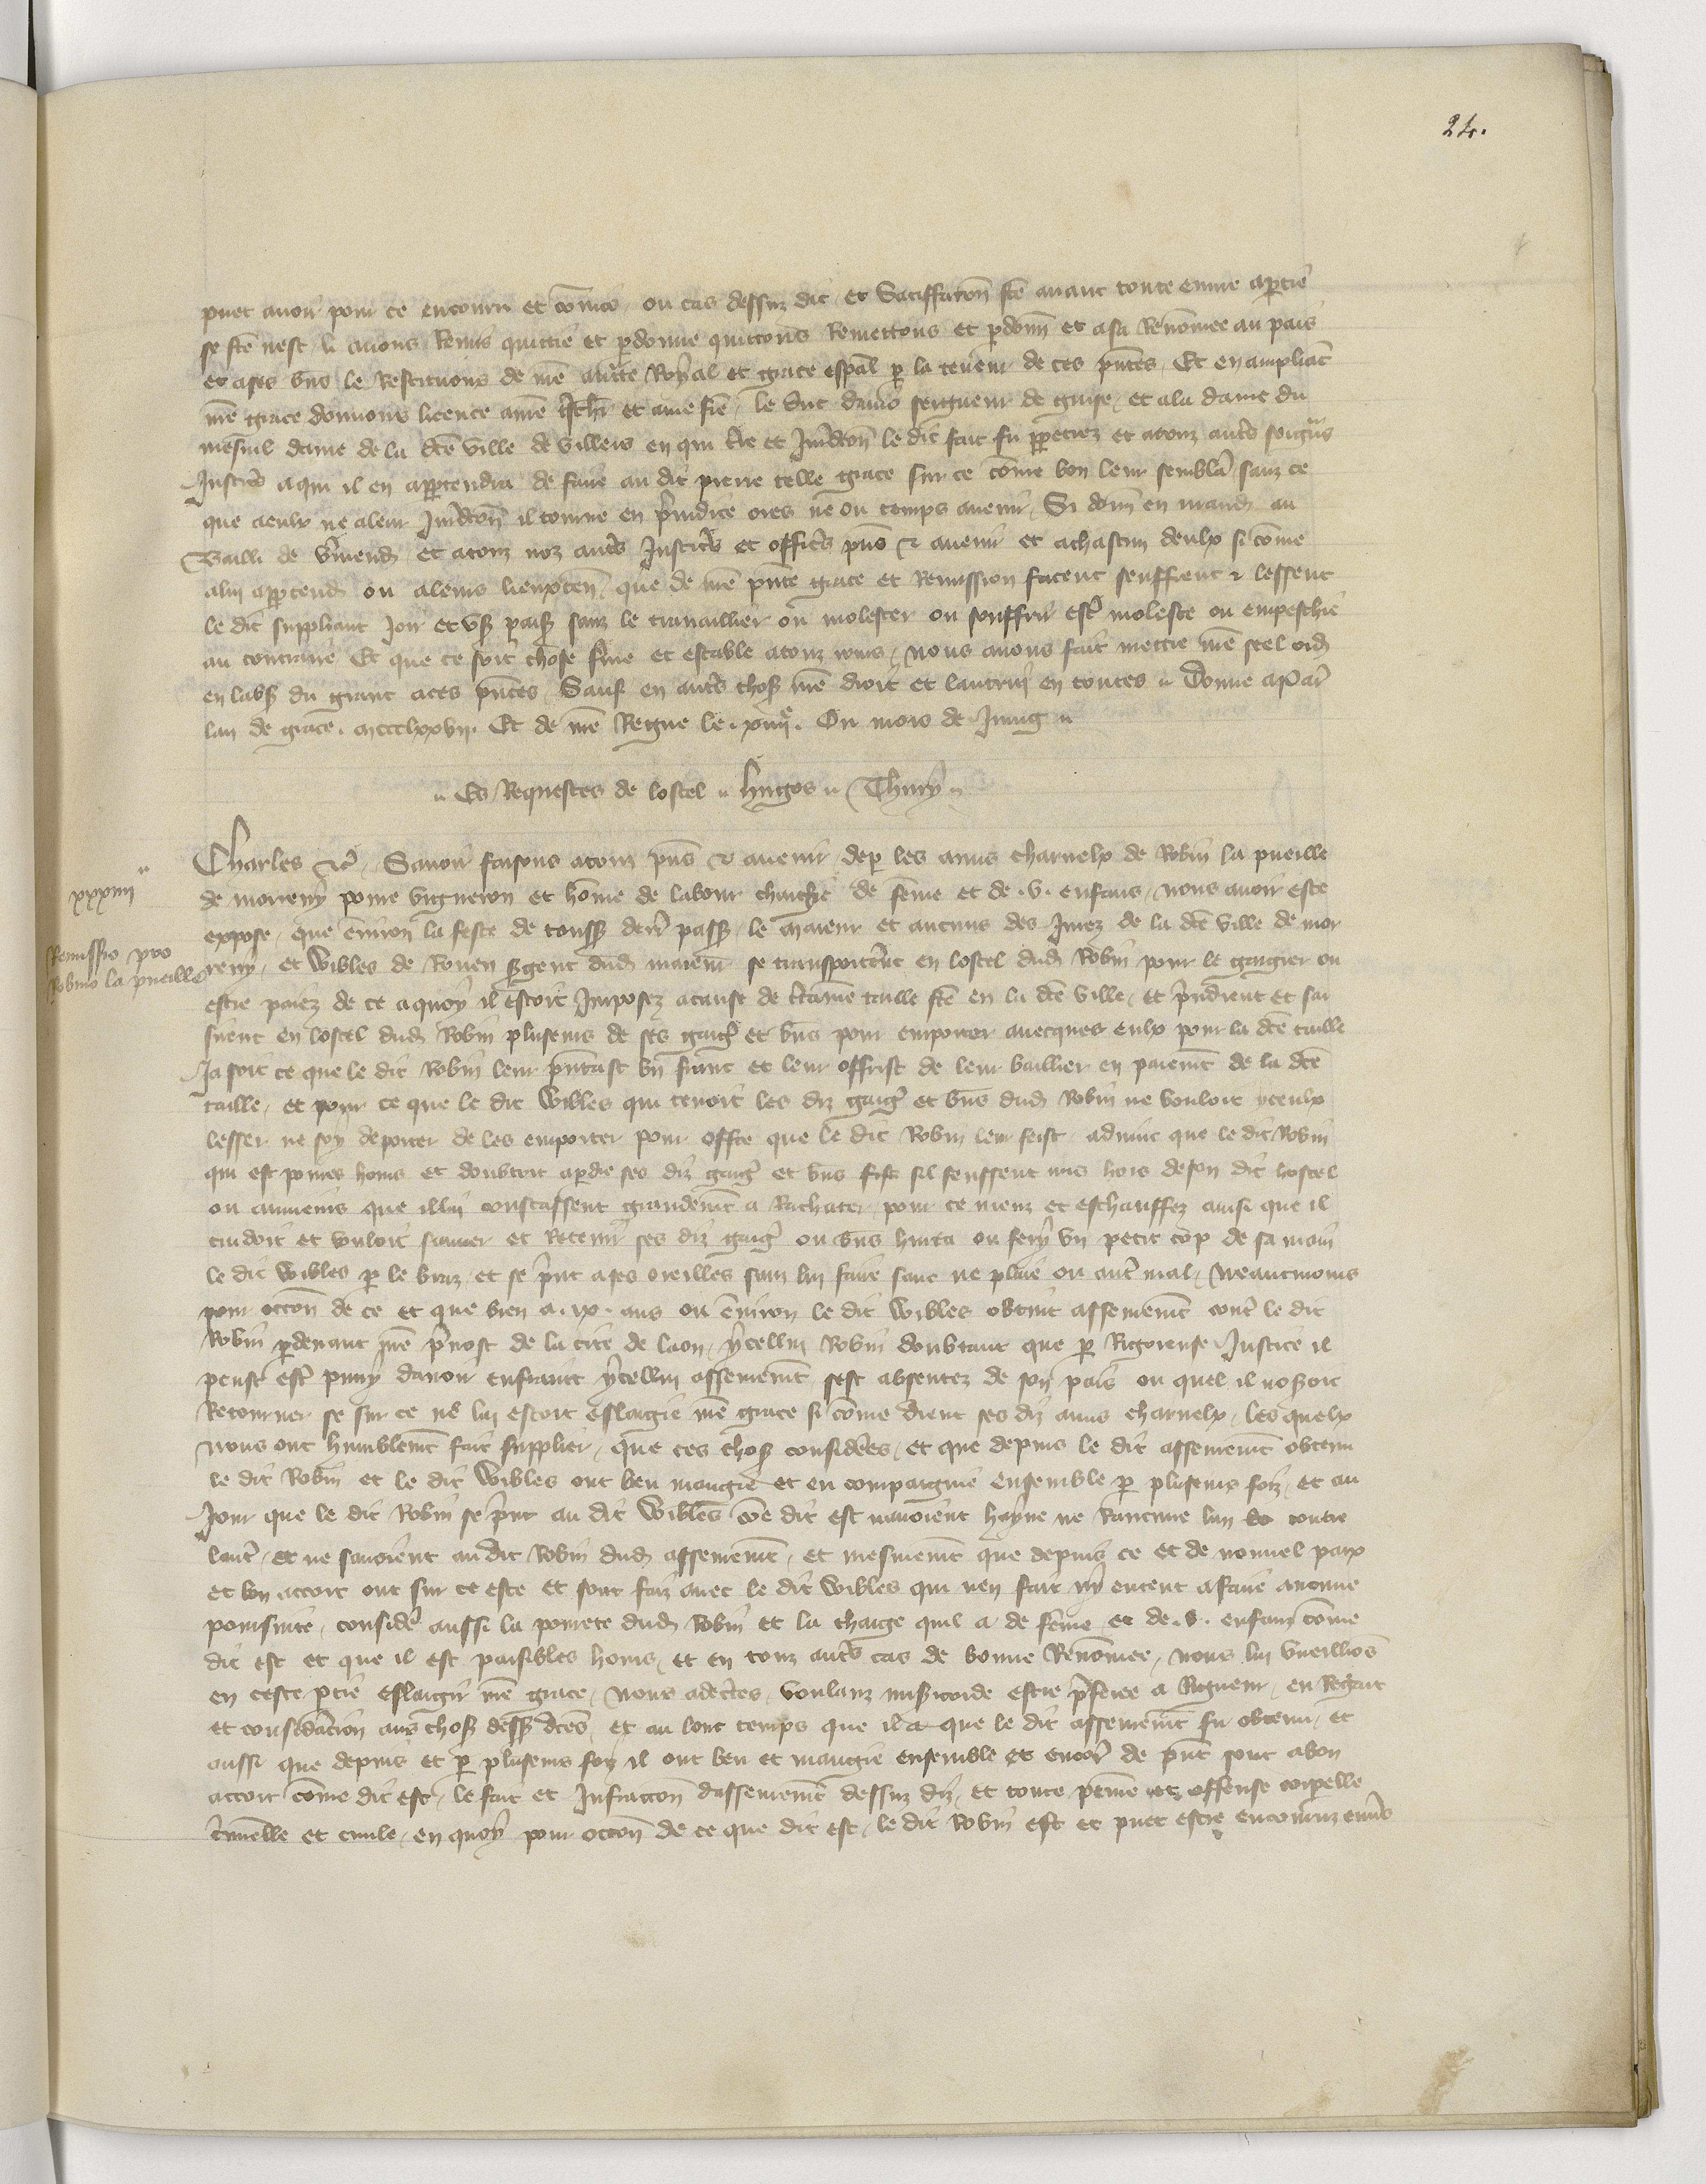 24.
puet avoir pour ce encouru et cōmis ou cas dessuz dit et Satiffaccōn fcē avant toute euvre a ptie
se fcē nest li avons Remis quictie et pdonne quictons Remettons et pdonn et a sa Renōmee au pais
et a ses bn̄s le Restituons de nrē auctte Royal et grace espāl p la teneur de ces pn̄tes Et en ampliāt
nrē grace donnons licence a nrē et a nre le duc daniō seigneur de guise et a la dame du
mesnil dame de la dcē ville de villers en qui tr̄e et Jurīdcōn le dit fait fu ppetrez et a touz autr̄s seigūs
Justic̄s a qui il en appartendra de faire au dit pierre telle grace sur ce cōme bon leur semblā sanz ce
que a eulx ne a leur Jurīdcōn il tourne en p̄iudice ores ne ou temps avenir Si donn en mand au
Bailli de v̄mend et a touz noz autr̄s Justic̄s et offic̄s pn̄s et avenir et a chascun deulx si cōme
a lui apptend ou a leurs lieuxten que de nrē pn̄te grace et Remission facent seuffrent et lessent
le dit suppliant Joir et us paisb sanz le travaillier ou molester ou souffrir estr̄ moleste ou empeschie
au contraire Et que ce soit chose ferme et estable a touz iours nous avons fait mettre nrē scel ord
en labs du grant a ces pn̄tes Sauf en autr̄s chos nrē droit et lautruy en toutes Donne a Par̄
lan de grace mccclxxvii. Et de nrē Regne le xiiijᵉ. Ou mois de Juing
Es Requestes de lostel hugos Thury
Charles etc̄ Savoir faisons a touz pn̄s et avenir de p les amis charnelx de Robin la pueille
de morreny povre vigneron et hōme de labour chargie de fēme et de .v. enfans nous avoir este
expose que ēuiron la feste de touss derr̄ pass le maieur et aucuns des Jurez de la dcē ville de mor
reny et Wibles de Rouen sgent dud maieur se transportēnt en lostel dud Robin pour le gaigier ou
estre paiez de ce a quoy il estoit Imposez a cause de c̄tainē taille fcē en la dcē ville et p̄ndrent et sai
sirent en lostel dud Robin pluseurs de ses gaiḡ et bn̄s pour emporter avecques eulx pour la dcē taille
Ja soit ce que le dit Robin leur pn̄tast un franc et leur offrist de leur baillier en paiemt de la dcē
taille et pour ce que le dit Wibles qui tenoit les diz gaiḡ et bn̄s dud Robin ne vouloit yceulx
lesser ne soy deporter de les emporter pour offre que le dit Robin leur feist advint que le dit Robin
qui est povres homs et doubtoit a pdre ses diz gaiḡ et bn̄s sil feussent mis hors de son dit hostel
ou aumeins que illui coustassent grandemt a Rachater pour ce meuz et eschauffez ainsi que il
cuidoit et vouloit sauver et Retenir ses diz gaiḡ ou bn̄s hurta ou fery un petit cop de sa main
le dit Wibles p le braz et se p̄nt a ses oreilles sanz lui faire sanc ne plaie ou autr̄ mal Neantmoins
pour occōn de ce et que bien a .ix. ans ou ēuiron le dit Wibles obtint assevemt cont̄ le dit
Robin pdevant nrē p̄vost de la cite de laon ycellui Robin doubtant que p Rigoreuse Justice il
peust estr̄ puny davoir enfraint ycellui assevemt sest absentez de son pais ou quel il nosoit
Retourner se sur ce ne lui estoit eslargie nrē grace si cōme dient ses diz amis charnelx les quelx
nous ont humblemt fait supplier que ces chos considerees et que depuis le dit assevemt obtenu
le dit Robin et le dit Wibles ont beu mangie et en compaignie ensemble p pluseurs foiz et au
Jour que le dit Robin se p̄nt au dit Wibles cōe dit est navoient hayne ne Rancune lun contre
laut̄ et ne savoient au dit Robin dud assevemt et mesmemt que depuis ce et de nouvel paix
et bon accort ont sur ce este et sont faiz avec le dit Wibles qui nen fait ny entent a faire aucune
poursuite consider̄ aussi la povrete dud Robin et la charge quil a de fēme et de .v. enfanz cōme
dit est et que il est paisibles homs et en touz autr̄s cas de bonne Renōmee nous lui vueilliōs
en ceste ptie eslargir nrē grace Nous adectes voulanz misicorde estre p̄feree a Rigueur en Regart
et considāciōn aus chos dess dcēs et au lonc temps que il a que le dit assevemt fu obtenu et
aussi que depuis et p pluseurs foiz il ont beu et mangie ensemble et encor̄ de pn̄t sont a bon
accort cōme dit est le fait et Infraccōn dassevemt dessuz diz et toute peine et offense corpelle
c̄minelle et civile en quoy pour occōn de ce que dit est le dit Robin est et puet estre encouruz env̄s
xxxiiii
Remissio pro
Robino la pueille